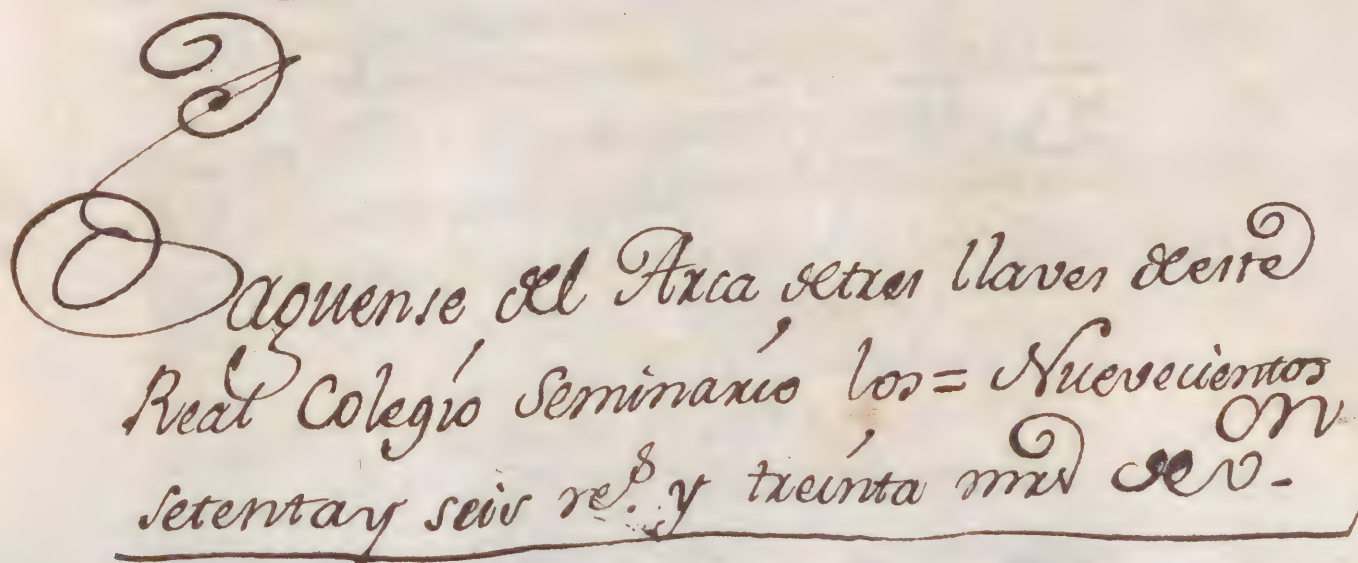 Saquense del Arca de tres llaves de este
Real Colegio Seminario los = Nuevecientos
setenta y seis rs. y treinta mrs de Vn-